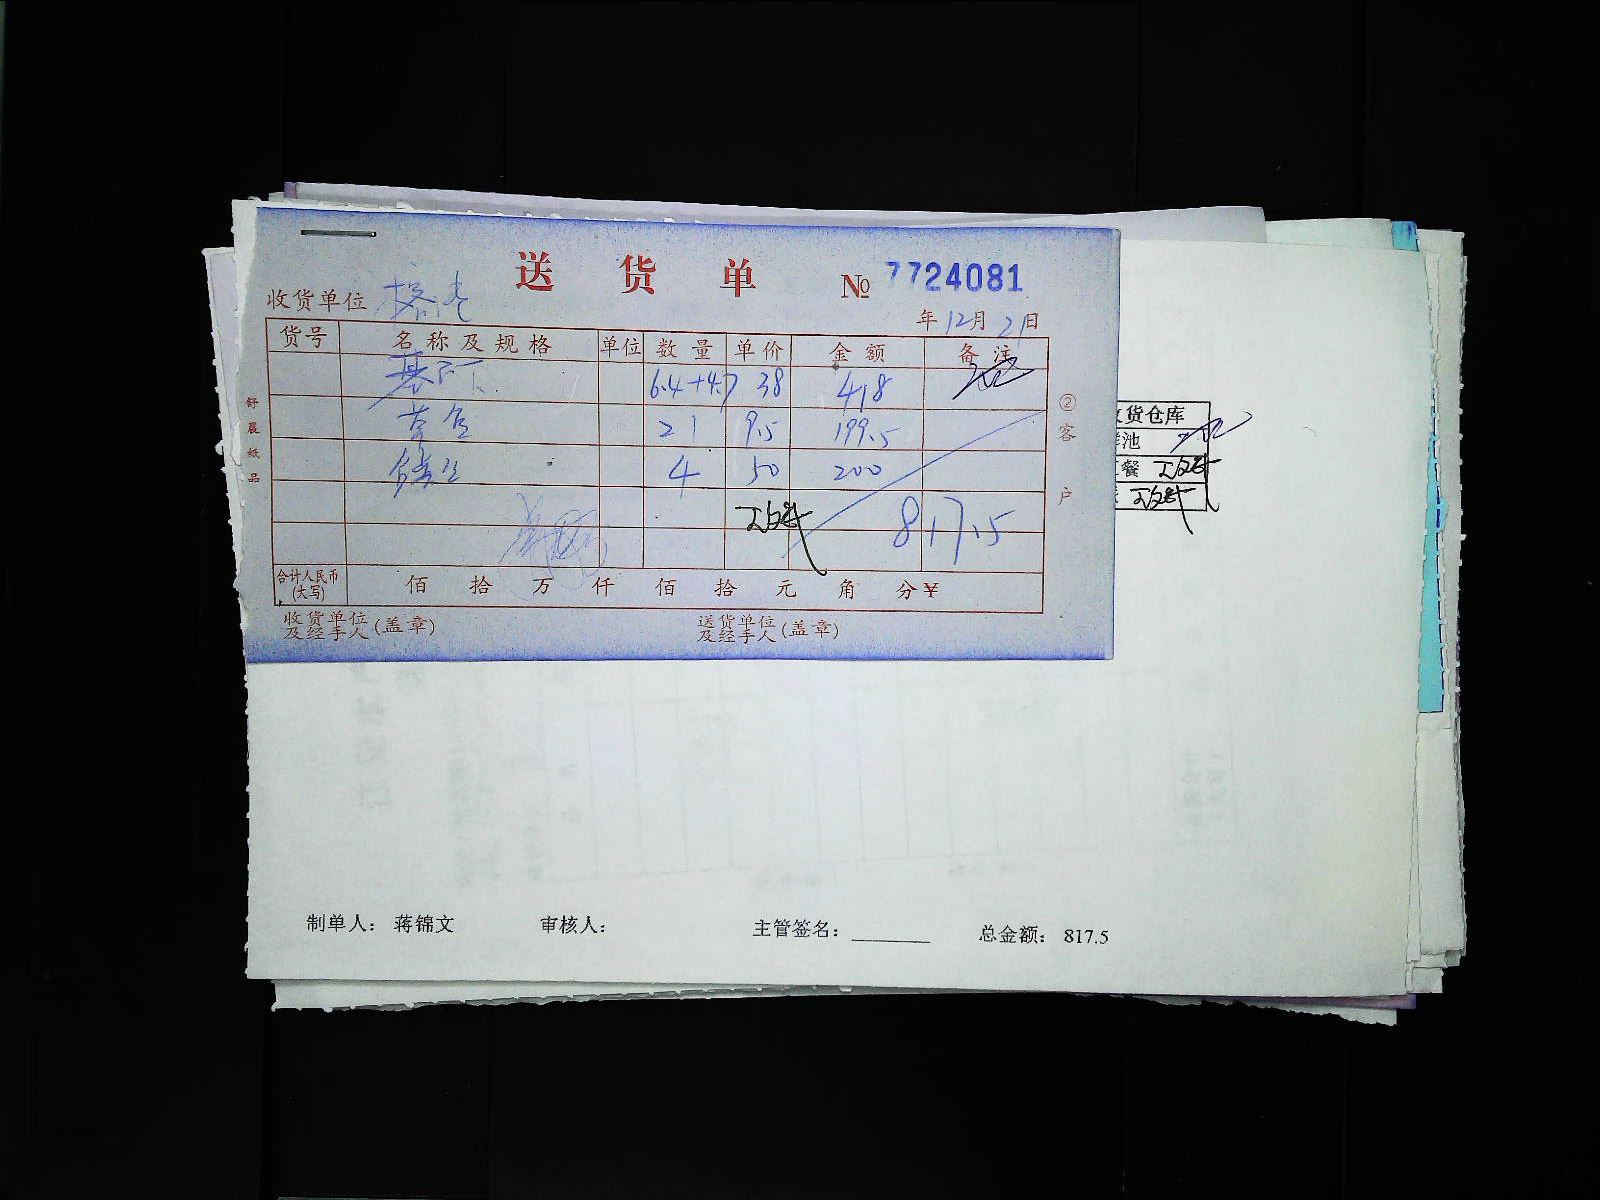 送 货 单 № 7724081
收货单位
年12月21日
货号 名称及规格 单位 数量 单价 金额 备注
6.4+4.7 38 418
21 9.5 199.5
4 50 200
817.5
合计人民币(大写) 佰 拾 万 仟 佰 拾 元 角 分¥
收货单位及经手人(盖章) 送货单位及经手人(盖章)
舒晨纸品
②客户
货仓库
池
餐
制单人: 蒋锦文 审核人: 主管签名: ________ 总金额: 817.5